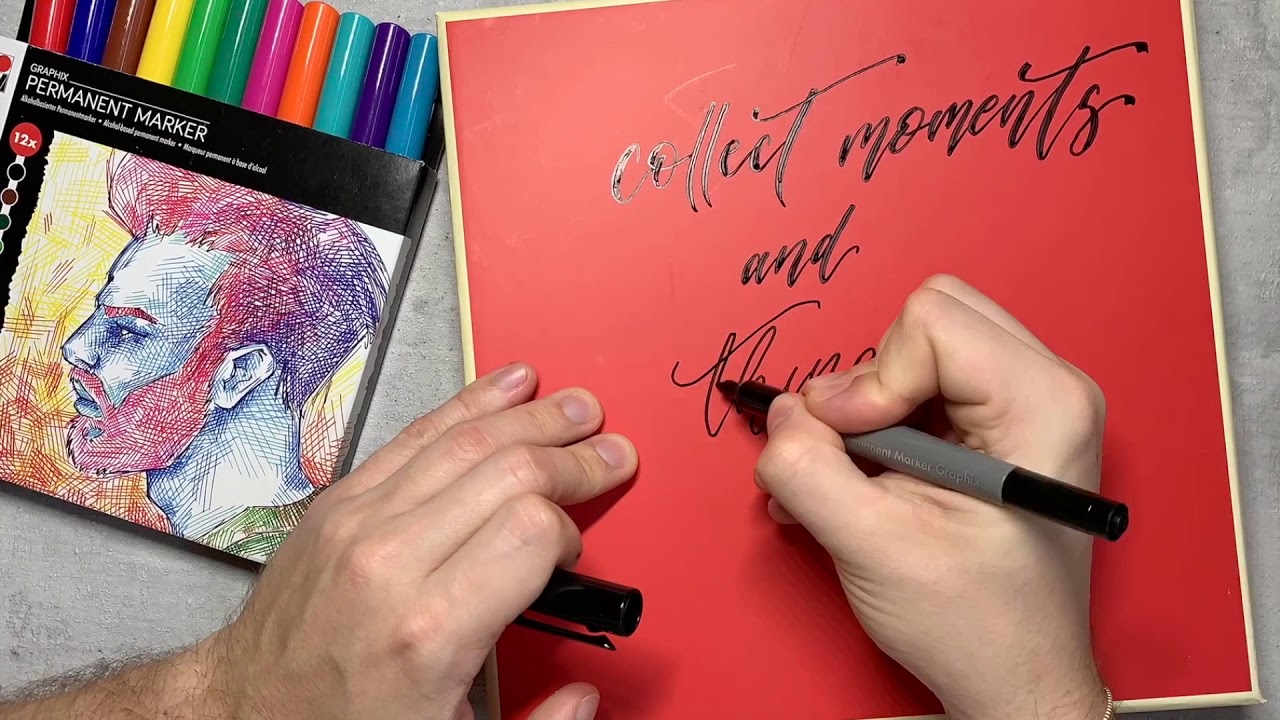 GRAPHIX
PERMANENT MARKER
Alkoholbasierter Permanentmarker • Alcohol-based permanent marker • Marqueur permanent à base d'alcool
12x
collect moments
and
Permanent Marker Graphix